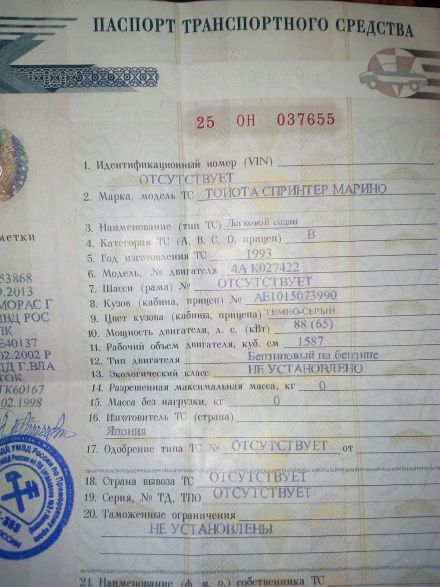 ПАСПОРТ ТРАНСПОРТНОГО СРЕДСТВА
25 ОН 037655
1. Идентификационный номер (VIN)
ОТСУТСТВУЕТ
2. Марка, модель ТС ТОЙОТА СПРИНТЕР МАРИНО
3. Наименование (тип ТС) Легковой седан
4. Категория ТС (A, B, C, D, прицеп) B
5. Год изготовления ТС 1993
6. Модель, № двигателя 4А К027422
7. Шасси (рама) № ОТСУТСТВУЕТ
8. Кузов (кабина, прицеп) № АВ1015073990
9. Цвет кузова (кабины, прицепа) ТЕМНО-СЕРЫЙ
10. Мощность двигателя, л. с. (кВт) 88 (65)
11. Рабочий объем двигателя, куб. см 1587
12. Тип двигателя Бензиновый на бензине
13. Экологический класс НЕ УСТАНОВЛЕНО
14. Разрешенная максимальная масса, кг 0
15. Масса без нагрузки, кг 0
16. Изготовитель ТС (страна)
Япония
17. Одобрение типа ТС № ОТСУТСТВУЕТ от
18. Страна вывоза ТС ОТСУТСТВУЕТ
19. Серия, № ТД, ТПО ОТСУТСТВУЕТ
20. Таможенные ограничения
НЕ УСТАНОВЛЕНЫ
21. Наименование (ф. и. о.) собственника ТС
метки
53868
.2013
МОРАС Г
ВД РОС
ПК
E40137
02.2002 Р
Д Г.ВЛА
ТОК
ТК60167
02.1998